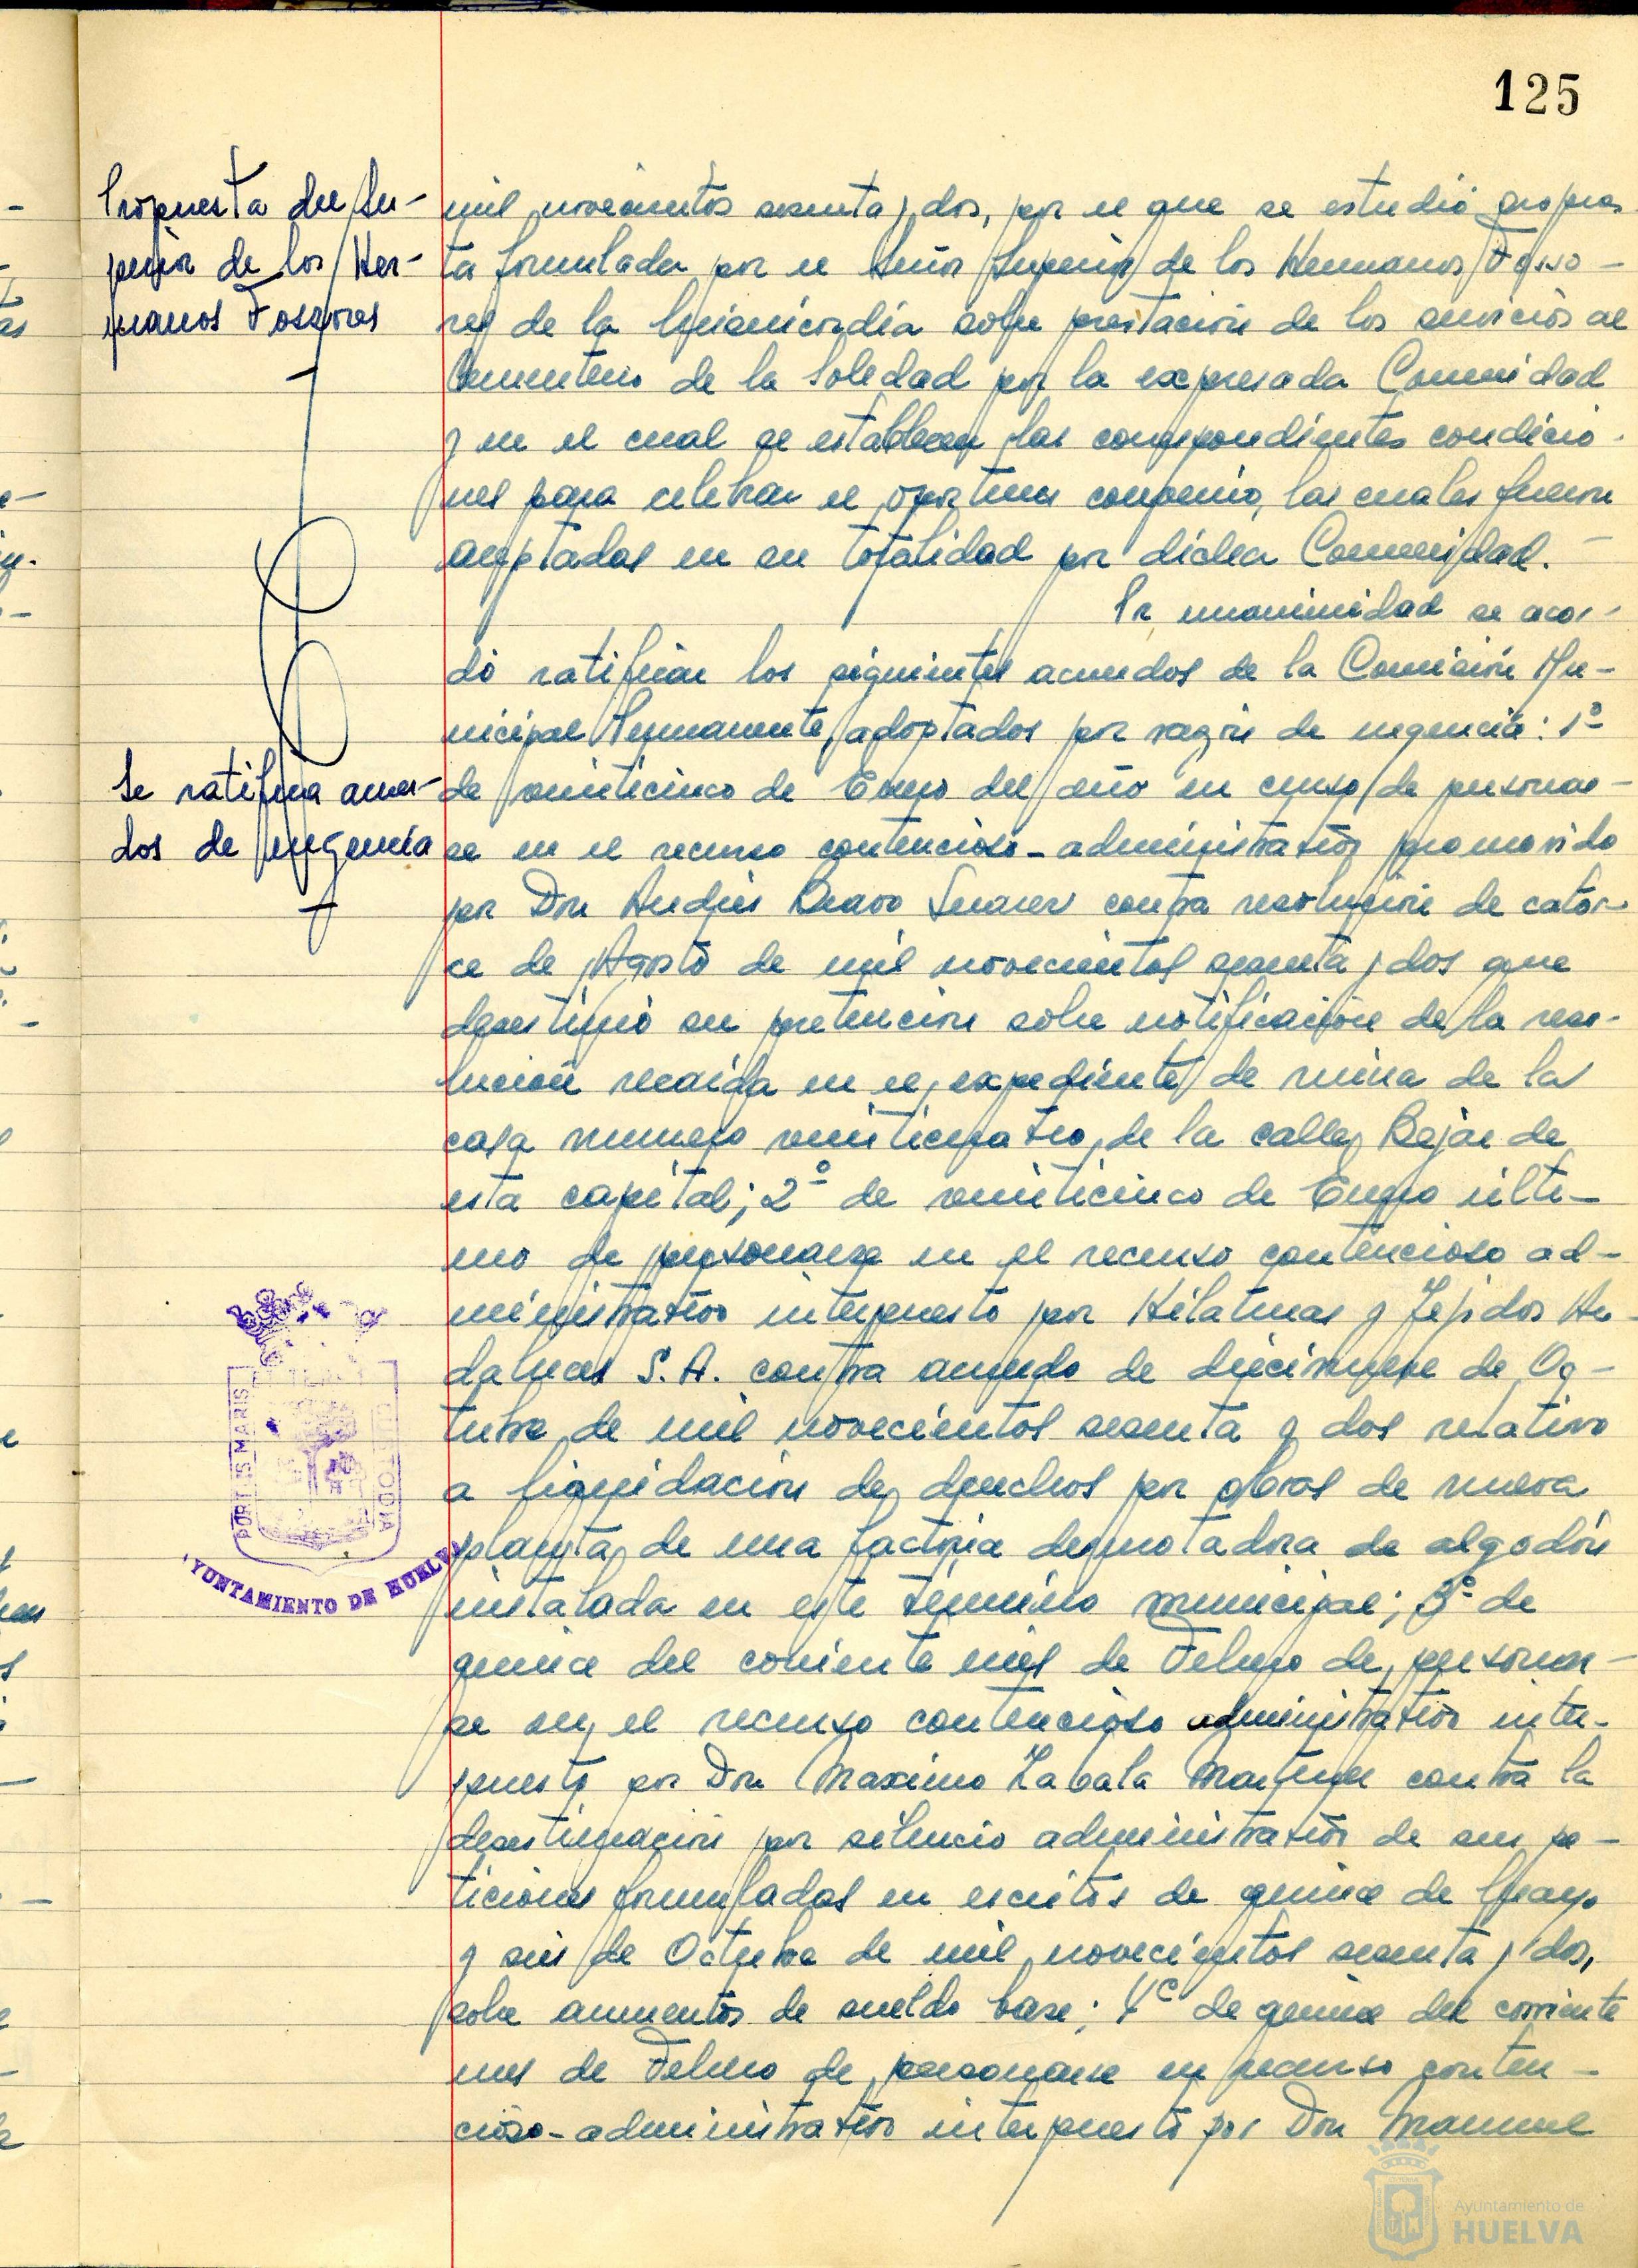 125
Propuesta del Su-
perior de los Her-
manos Fossores
mil novecientos sesenta y dos, por el que se estudió propues-
ta formulada por el Señor Superior de los Hermanos Fosso-
res de la Misericordia sobre prestación de los servicios al
Cementerio de la Soledad por la expresada Comunidad
y en el cual se establecen las correspondientes condicio-
nes para celebrar el oportuno convenio, las cuales fueron
aceptadas en su totalidad por dicha Comunidad.
Pr unanimidad se acor-
dó ratificar los siguientes acuerdos de la Comisión Mu-
nicipal Permanente, adoptados por razón de urgencia: 1º
Se ratifica acuer-
dos de urgencia
de veinticinco de Enero del año en curso de personar-
se en el recurso contencioso-administrativo promovido
por Don Andrés Bravo Suarez contra resolución de cator-
ce de Agosto de mil novecientos sesenta y dos que
desestimó su pretención sobre notificación de la reso-
lución recaída en el expediente de ruina de la
casa numero veinticuatro de la calle Bejar de
esta capital; 2º de veinticinco de Enero últi-
mo de personarse en el recurso contencioso ad-
ministrativo interpuesto por Hilaturas y Tejidos An-
daluces S.A. contra acuerdo de diecinueve de Oc-
tubre de mil novecientos sesenta y dos relativo
a liquidación de derechos por obras de nueva
planta de una factoria desmotadora de algodón
instalada en este término municipal; 3º de
quince del corriente mes de Febrero de personar-
se en el recurso contencioso administrativo inter-
puesto por Don Maximo Zabala Martinez contra la
desestimación por silencio administrativo de sus pe-
ticiones formuladas en escritos de quince de Mayo
y seis de Octubre de mil novecientos sesenta y dos,
sobre aumentos de sueldo base; 4º de quince del corriente
mes de Febrero de personarse en recurso conten-
cioso-administrativo interpuesto por Don Manuel
PORTUS MARIS
CUSTODIA
YUNTAMIENTO DE HUELVA
Ayuntamiento de
HUELVA